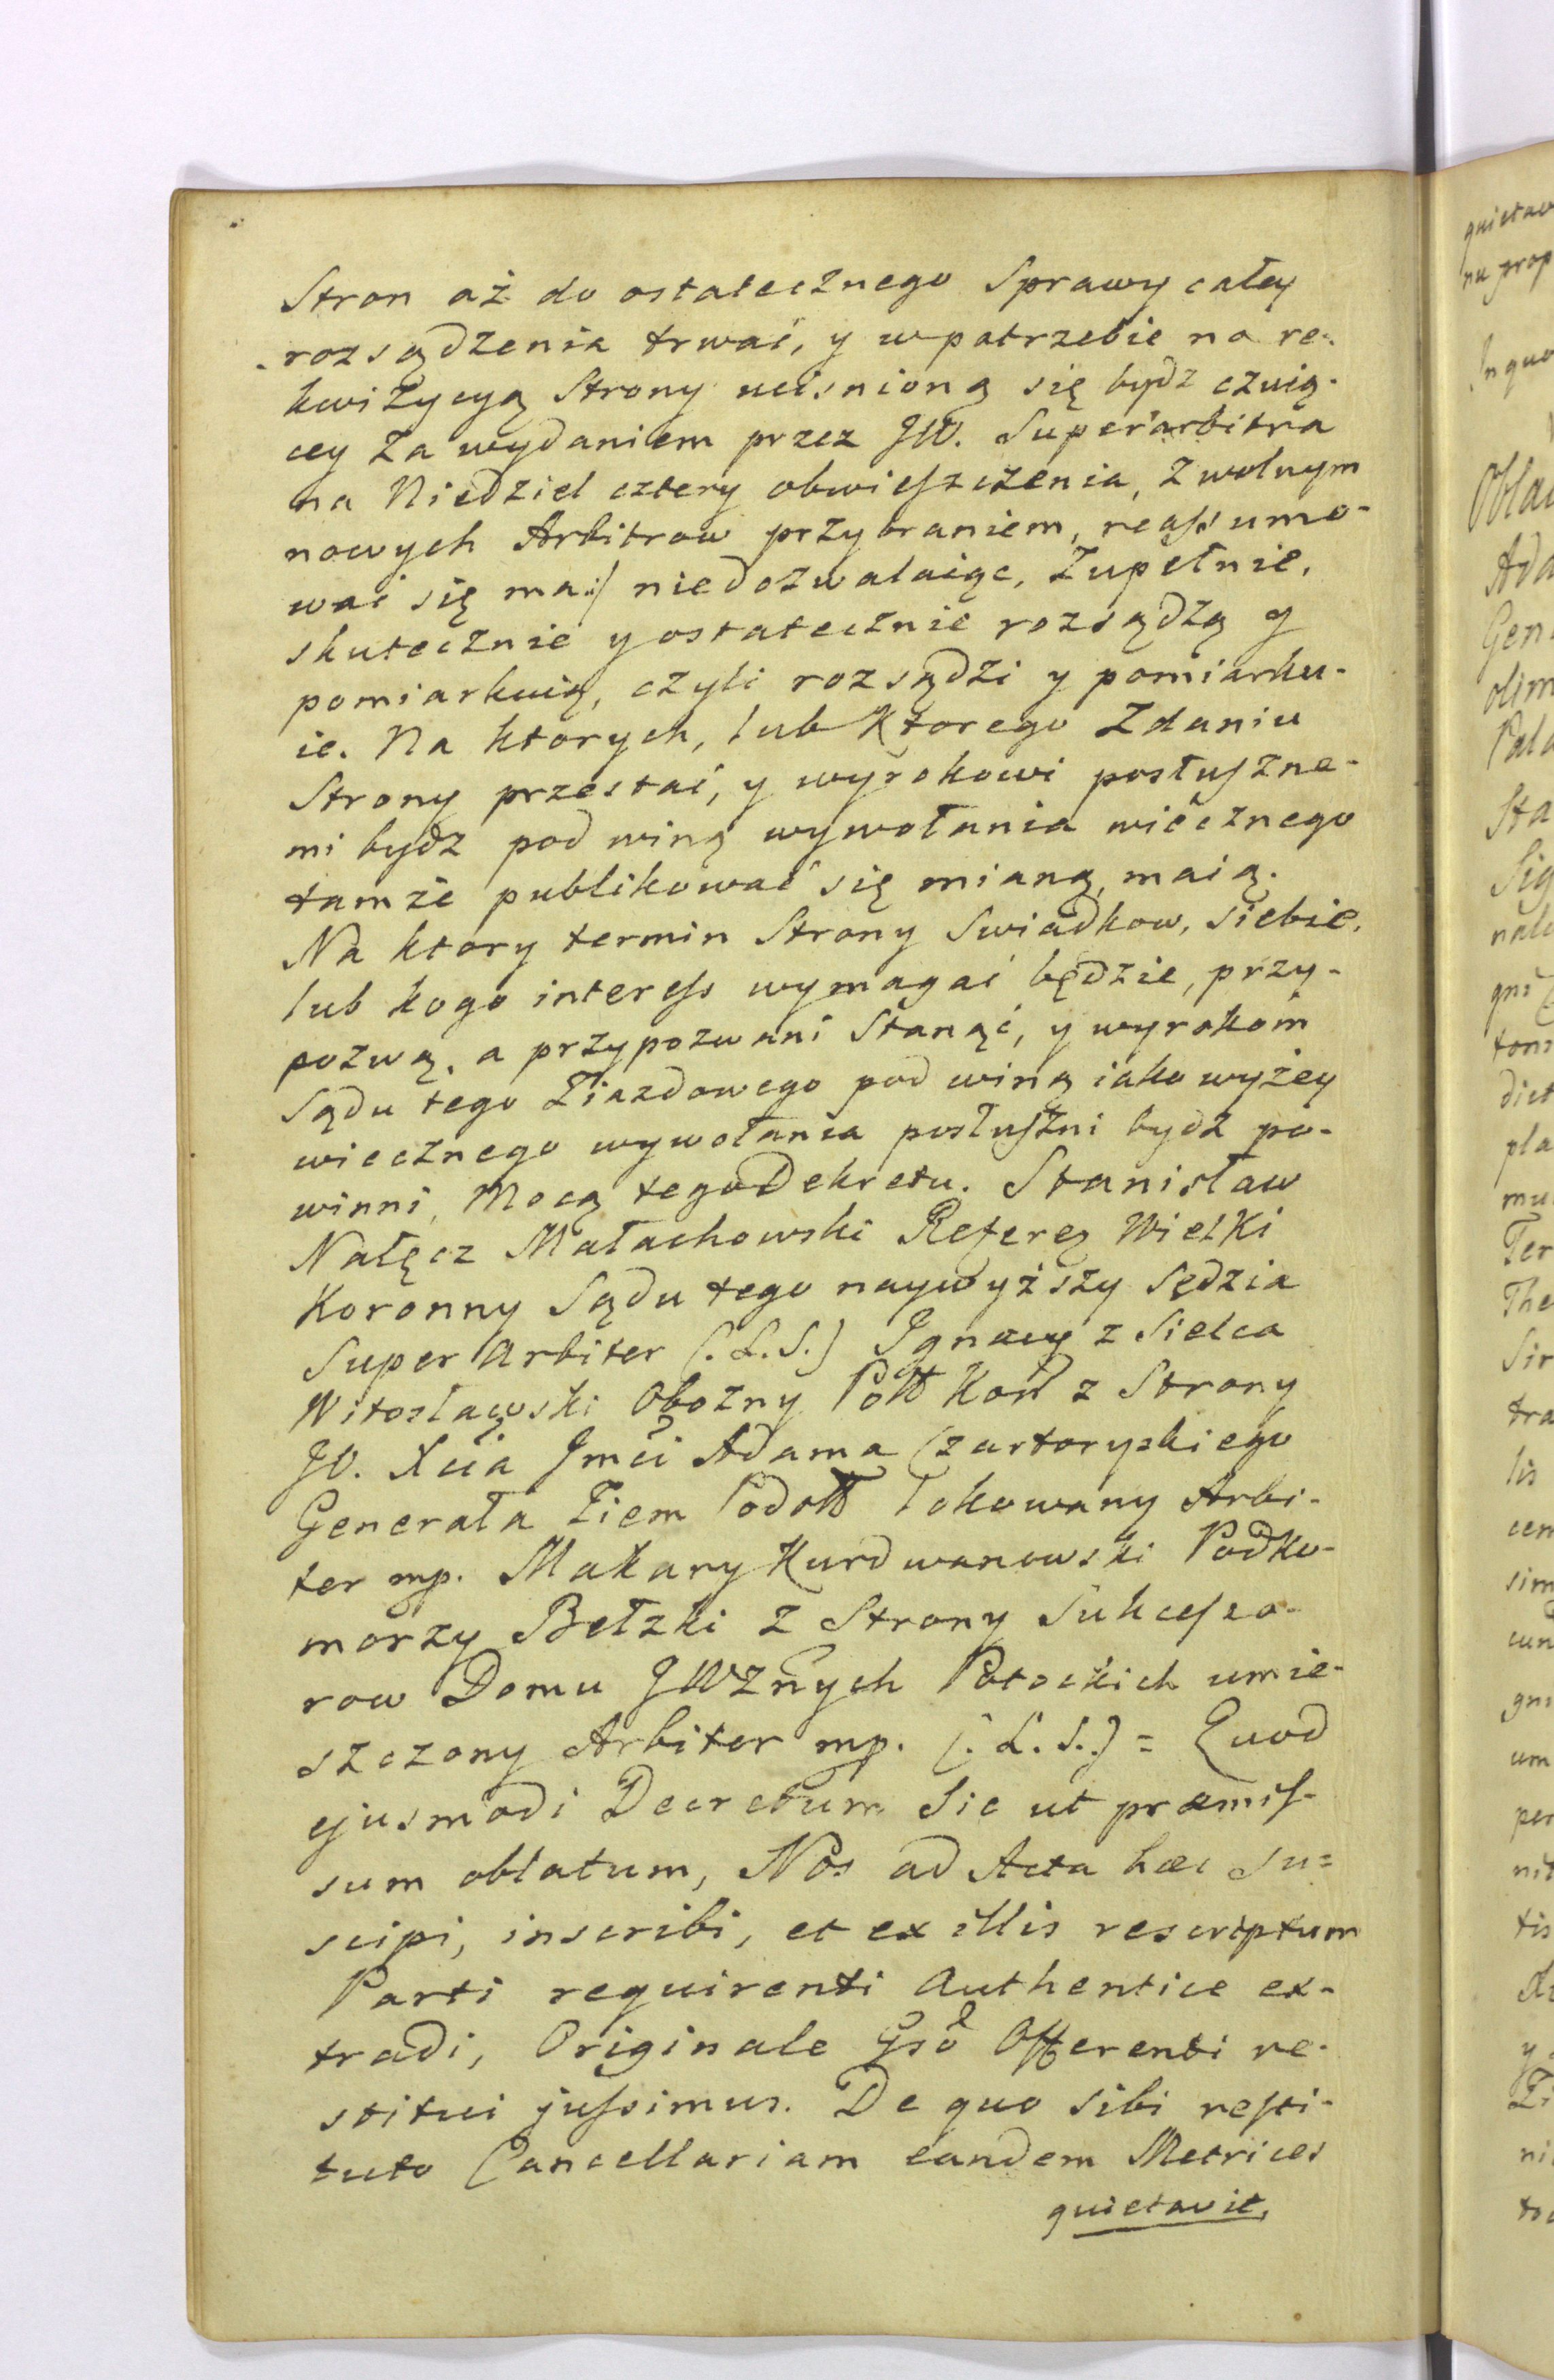 Stron aż do ostatecznego Sprawy całey
rozsądzenia trwać, y w potrzebie na re-
kwizycyą Strony uciśnioną się bydz czuią-
cey za wydaniem przez JW. Superarbitra
na Niedziel cztery obwieszczenia, z wolnym
nowych Arbitrow przybraniem, reassumo-
wać się ma:/ niedozwalaiąc, zupełnie,
skutecznie y ostatecznie rozsądzą y
pomiarkuią, czyli rozsądzi y pomiarku-
ie. Na ktorych, lub Ktorego Zdaniu
Strony przestać, y wyrokowi posłuszne-
mi bydz pod winą wywołania wiecznego
tamże publikować się mianą, maią.
Na ktory termin Strony Swiadkow, siebie,
lub kogo interess wymagać będzie, przy-
pozwą, a przypozwani Stanąć, y wyrokom
Sądu tego Ziazdowego pod winą iako wyżey
wiecznego wywołania posłuszni bydz po-
winni, Mocą tego Dekretu. Stanisław
Nałęcz Małachowski Referez Wielki
Koronny Sądu tego naywyższy Sędzia
Super Arbiter (:L.S.) Ignacy z Sielca
Witosławski Obozny Poll Kon z Strony
JO. Xcia Jmci Adama Czartoryskiego
Generała Ziem Podoll lokowany Arbi-
ter mp. Makary Kurdwanowski Podko-
morzy Bełzki z Strony Sukcesso-
row Domu JWznych Potockich umie-
szczony Arbiter mp. (:L.S.) = Quod
ejusmodi Decretum Sic ut præmis-
sum oblatum, Nos ad Acta hæc su=
scipi, inscribi, et ex illis rescriptum
Parti requirenti Authentice ex-
tradi, Originale Gso Offerenti re-
stitui jussimus. De quo sibi resti-
tuto Cancellariam eandem Metrices
quietavit,
quietav
nu prop
In quo
Obla
Ada
Gen
olim
Pala
Sta
Sig
nale
gni
toni
dict
pla
mu
Ter
The
Sir
tra
lis
cen
sim
cun
gni
um
per
nit
tis
y
Zi
ni